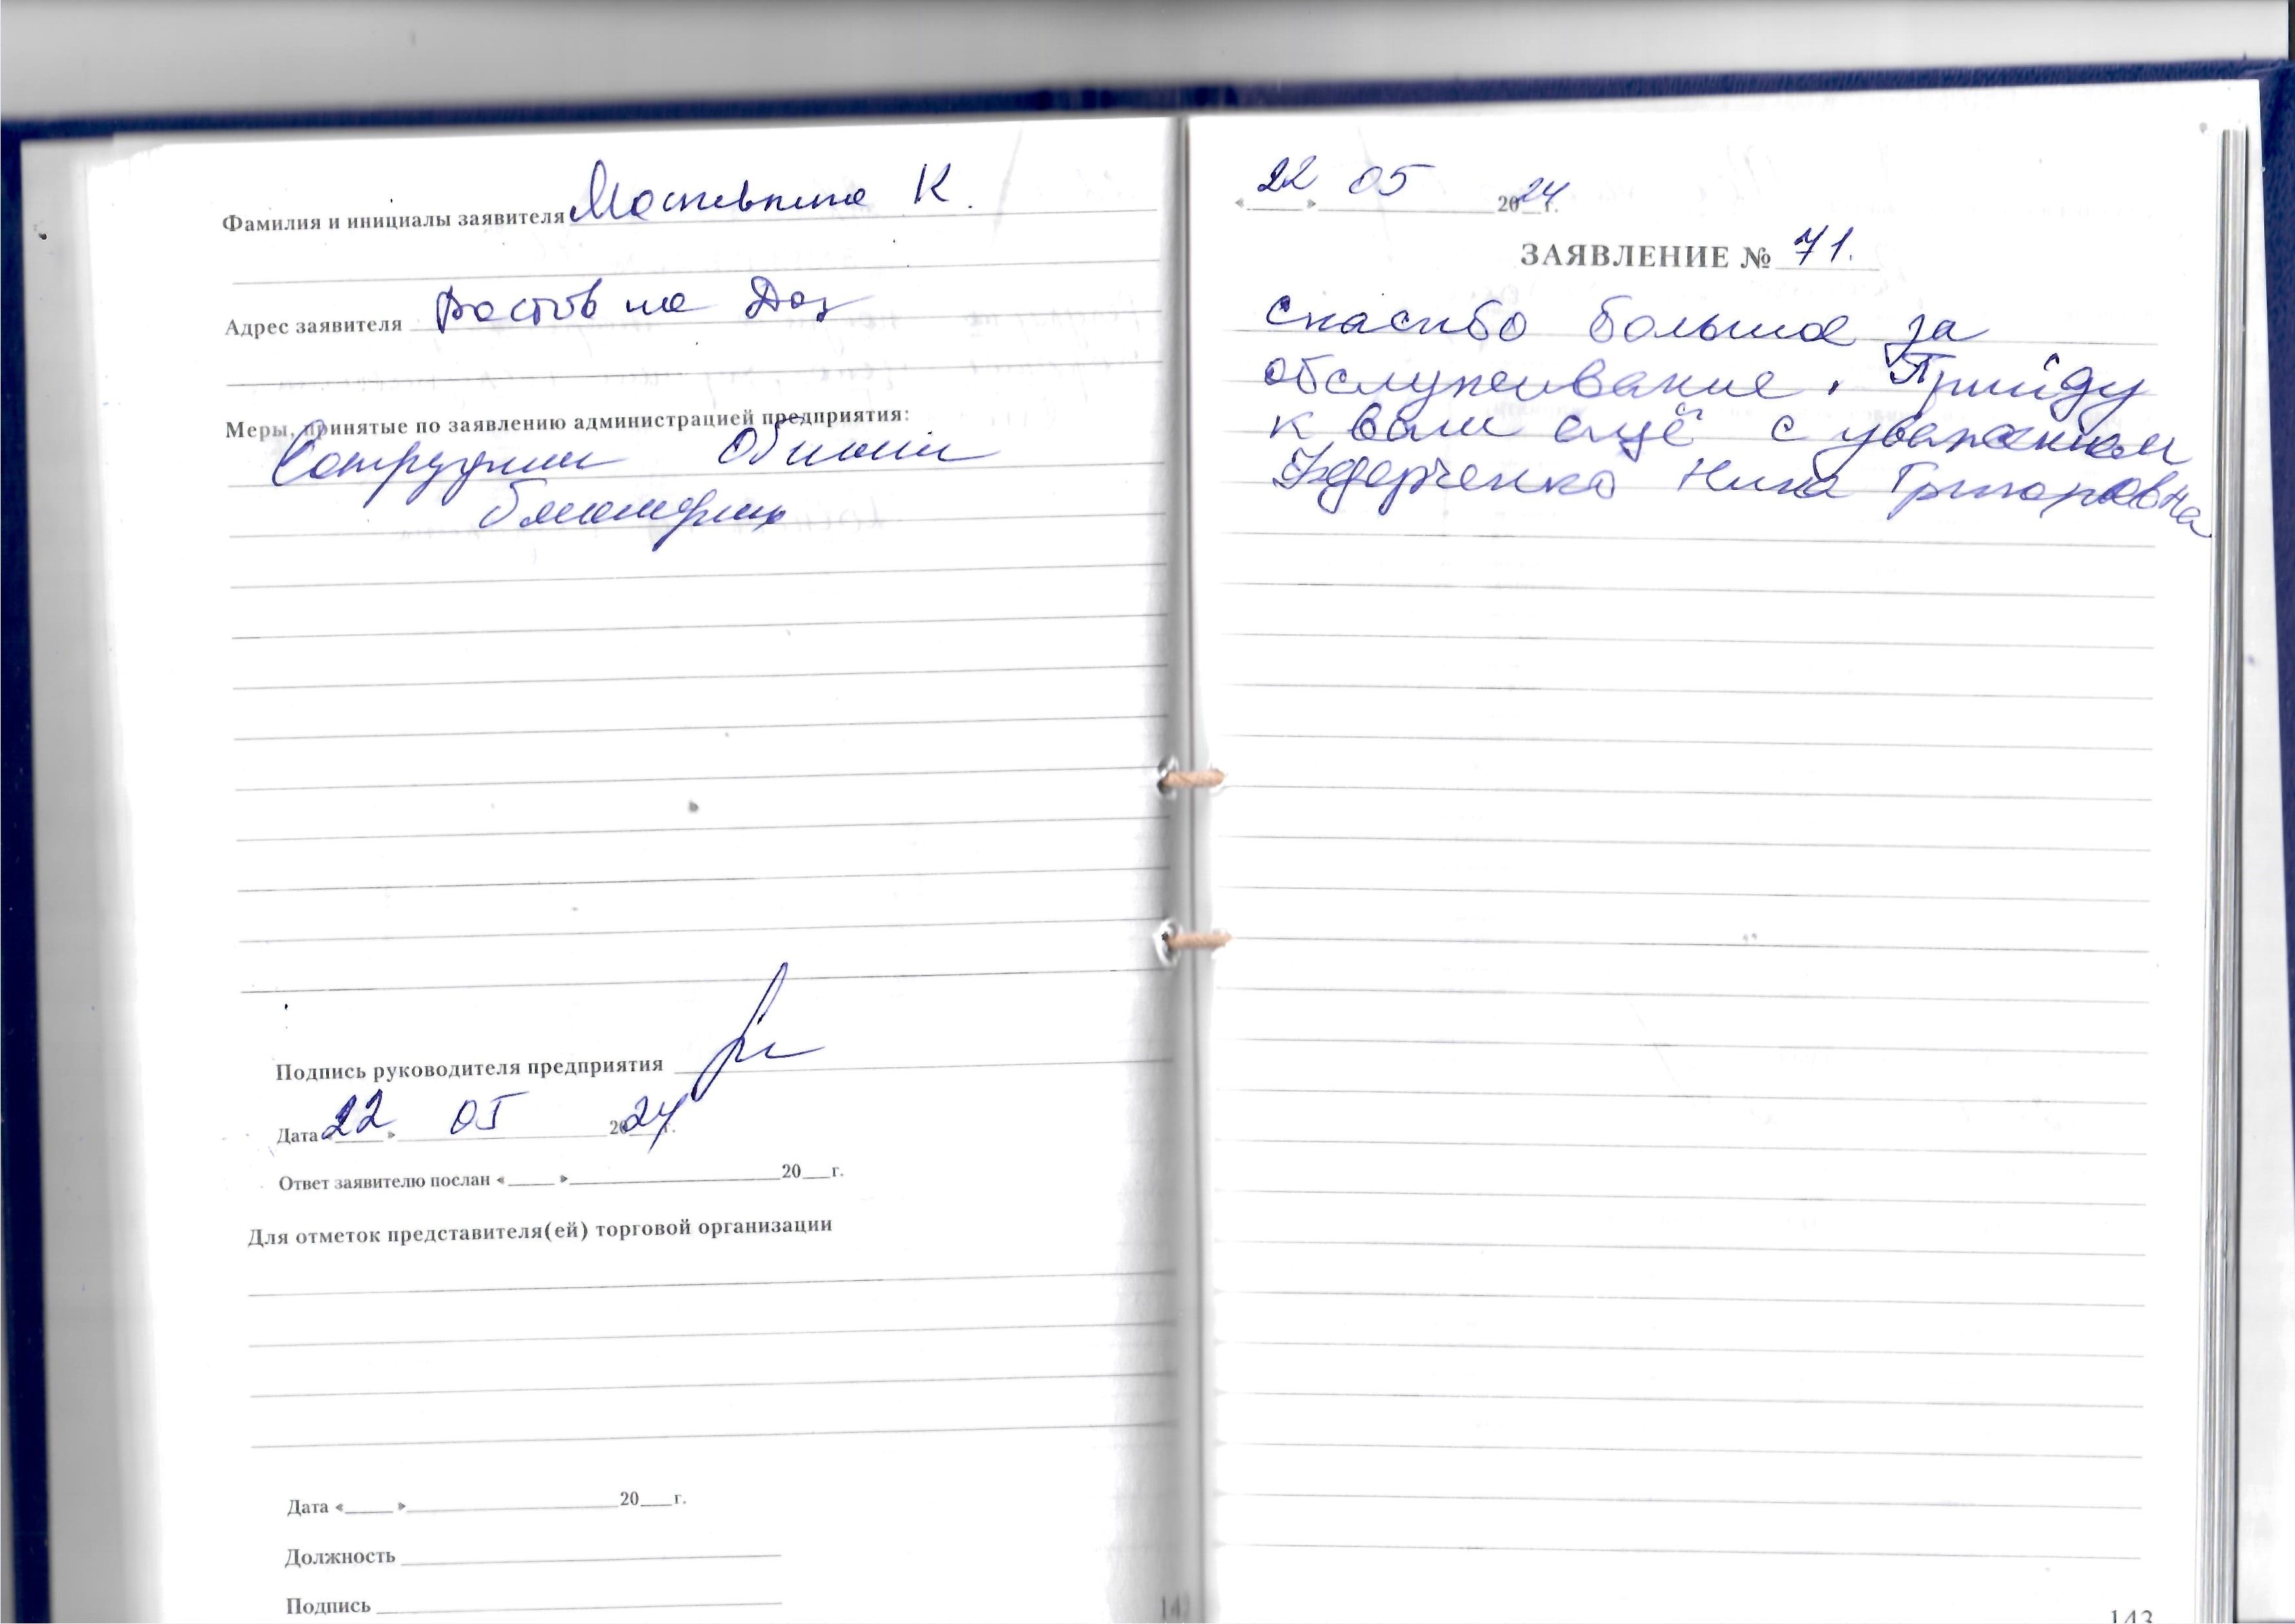 Фамилия и инициалы заявителя К.
Адрес заявителя Ростов на Дону
Меры, принятые по заявлению администрацией предприятия:
Подпись руководителя предприятия
Дата «22» 05 2024г.
Ответ заявителю послан «____» ____ 20__г.
Для отметок представителя(ей) торговой организации
Дата «____» ____ 20__г.
Должность
Подпись
142
«22» 05 2024г.
ЗАЯВЛЕНИЕ № 71.
Спасибо большое за
обслуживание. Прийду
к вам ещё с уважением
Нина Григоровна
143